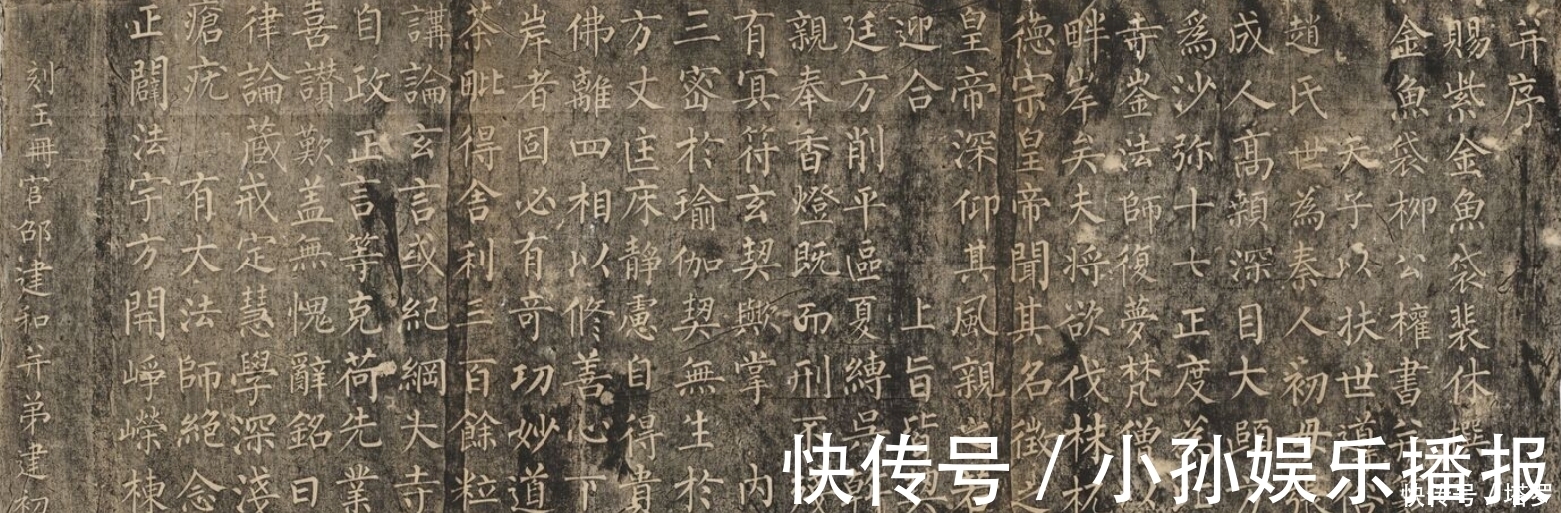 并序
賜紫金魚袋裴休撰
金魚袋柳公權書并
天子以扶世導
趙氏世為秦人初母張
成人高顙深目大頤
為沙弥十七正度為
寺崟法師復夢梵僧以
畔岸矣夫將欲伐株杌
德宗皇帝聞其名徵之
皇帝深仰其風親
迎合上旨皆
廷方削平區夏縛吳
親奉香燈既而刑不
有冥符玄契歟掌內
三密於瑜伽契無生於
方丈匡床靜慮自得貴
佛離四相以修善心下
岸者固必有奇功妙道
荼毗得舍利三百餘粒
講論玄言或紀綱大寺
自政正言等克荷先業
喜讚歎蓋無愧辭銘曰
律論藏戒定慧學深淺
瘡疣有大法師絕念
正闢法宇方開崢嶸棟
刻玉冊官邵建和并弟建初
快传号/小孙娱乐播报
快传号/塔罗